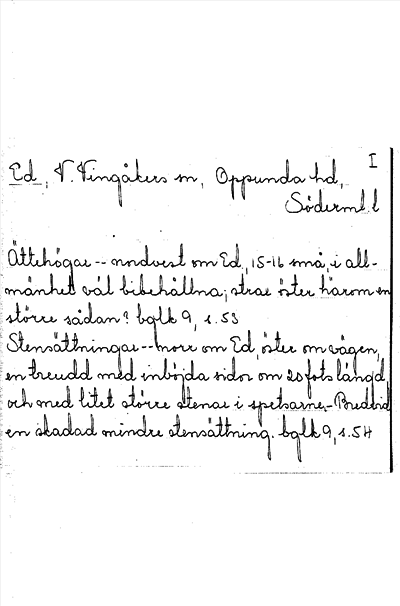 I
Ed, V. Vingåkers sn, Oppunda hd,
Söderml. l
Ättehögar -- nordvest om Ed, 15-16 små, i all-
mänhet väl bibehållna; strax öster härom en
större sådan? bglk 9, s. 53
Stensättningar -- norr om Ed, öster om vägen,
en treudd med inböjda sidor om 20 fots längd
och med litet större stenar i spetsarne. - Bredvid
en skadad mindre stensättning. bglk 9, s. 54